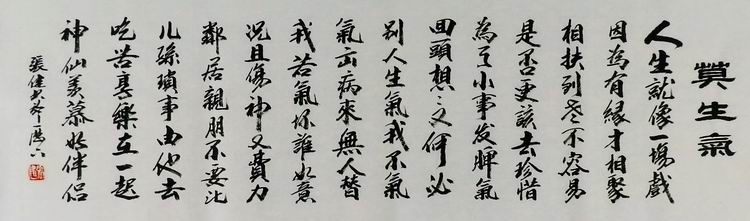 莫生氣
人生就像一場戲
因為有緣才相聚
相扶到老不容易
是否更該去珍惜
為了小事发脾氣
回頭想〻又何必
别人生氣我不氣
氣出病來無人替
我若氣坏誰如意
况且傷神又費力
鄰居親朋不要比
儿孫瑣事由他去
吃苦享樂在一起
神仙羡慕好伴侣
張健书